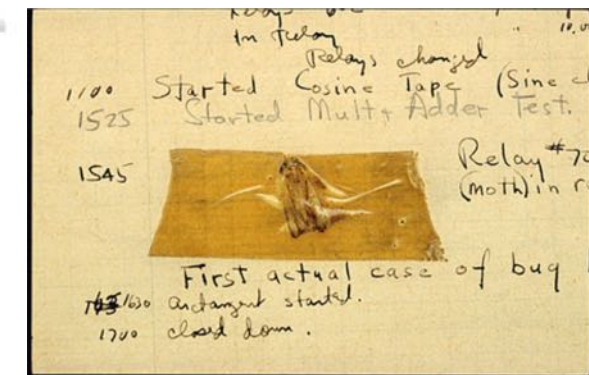 in relay
Relays changed
1100 Started Cosine Tape (Sine
1525 Started Mult + Adder Test.
1545 Relay #70
(moth) in r
First actual case of bug
1630 arctangent started.
1700 closed down.